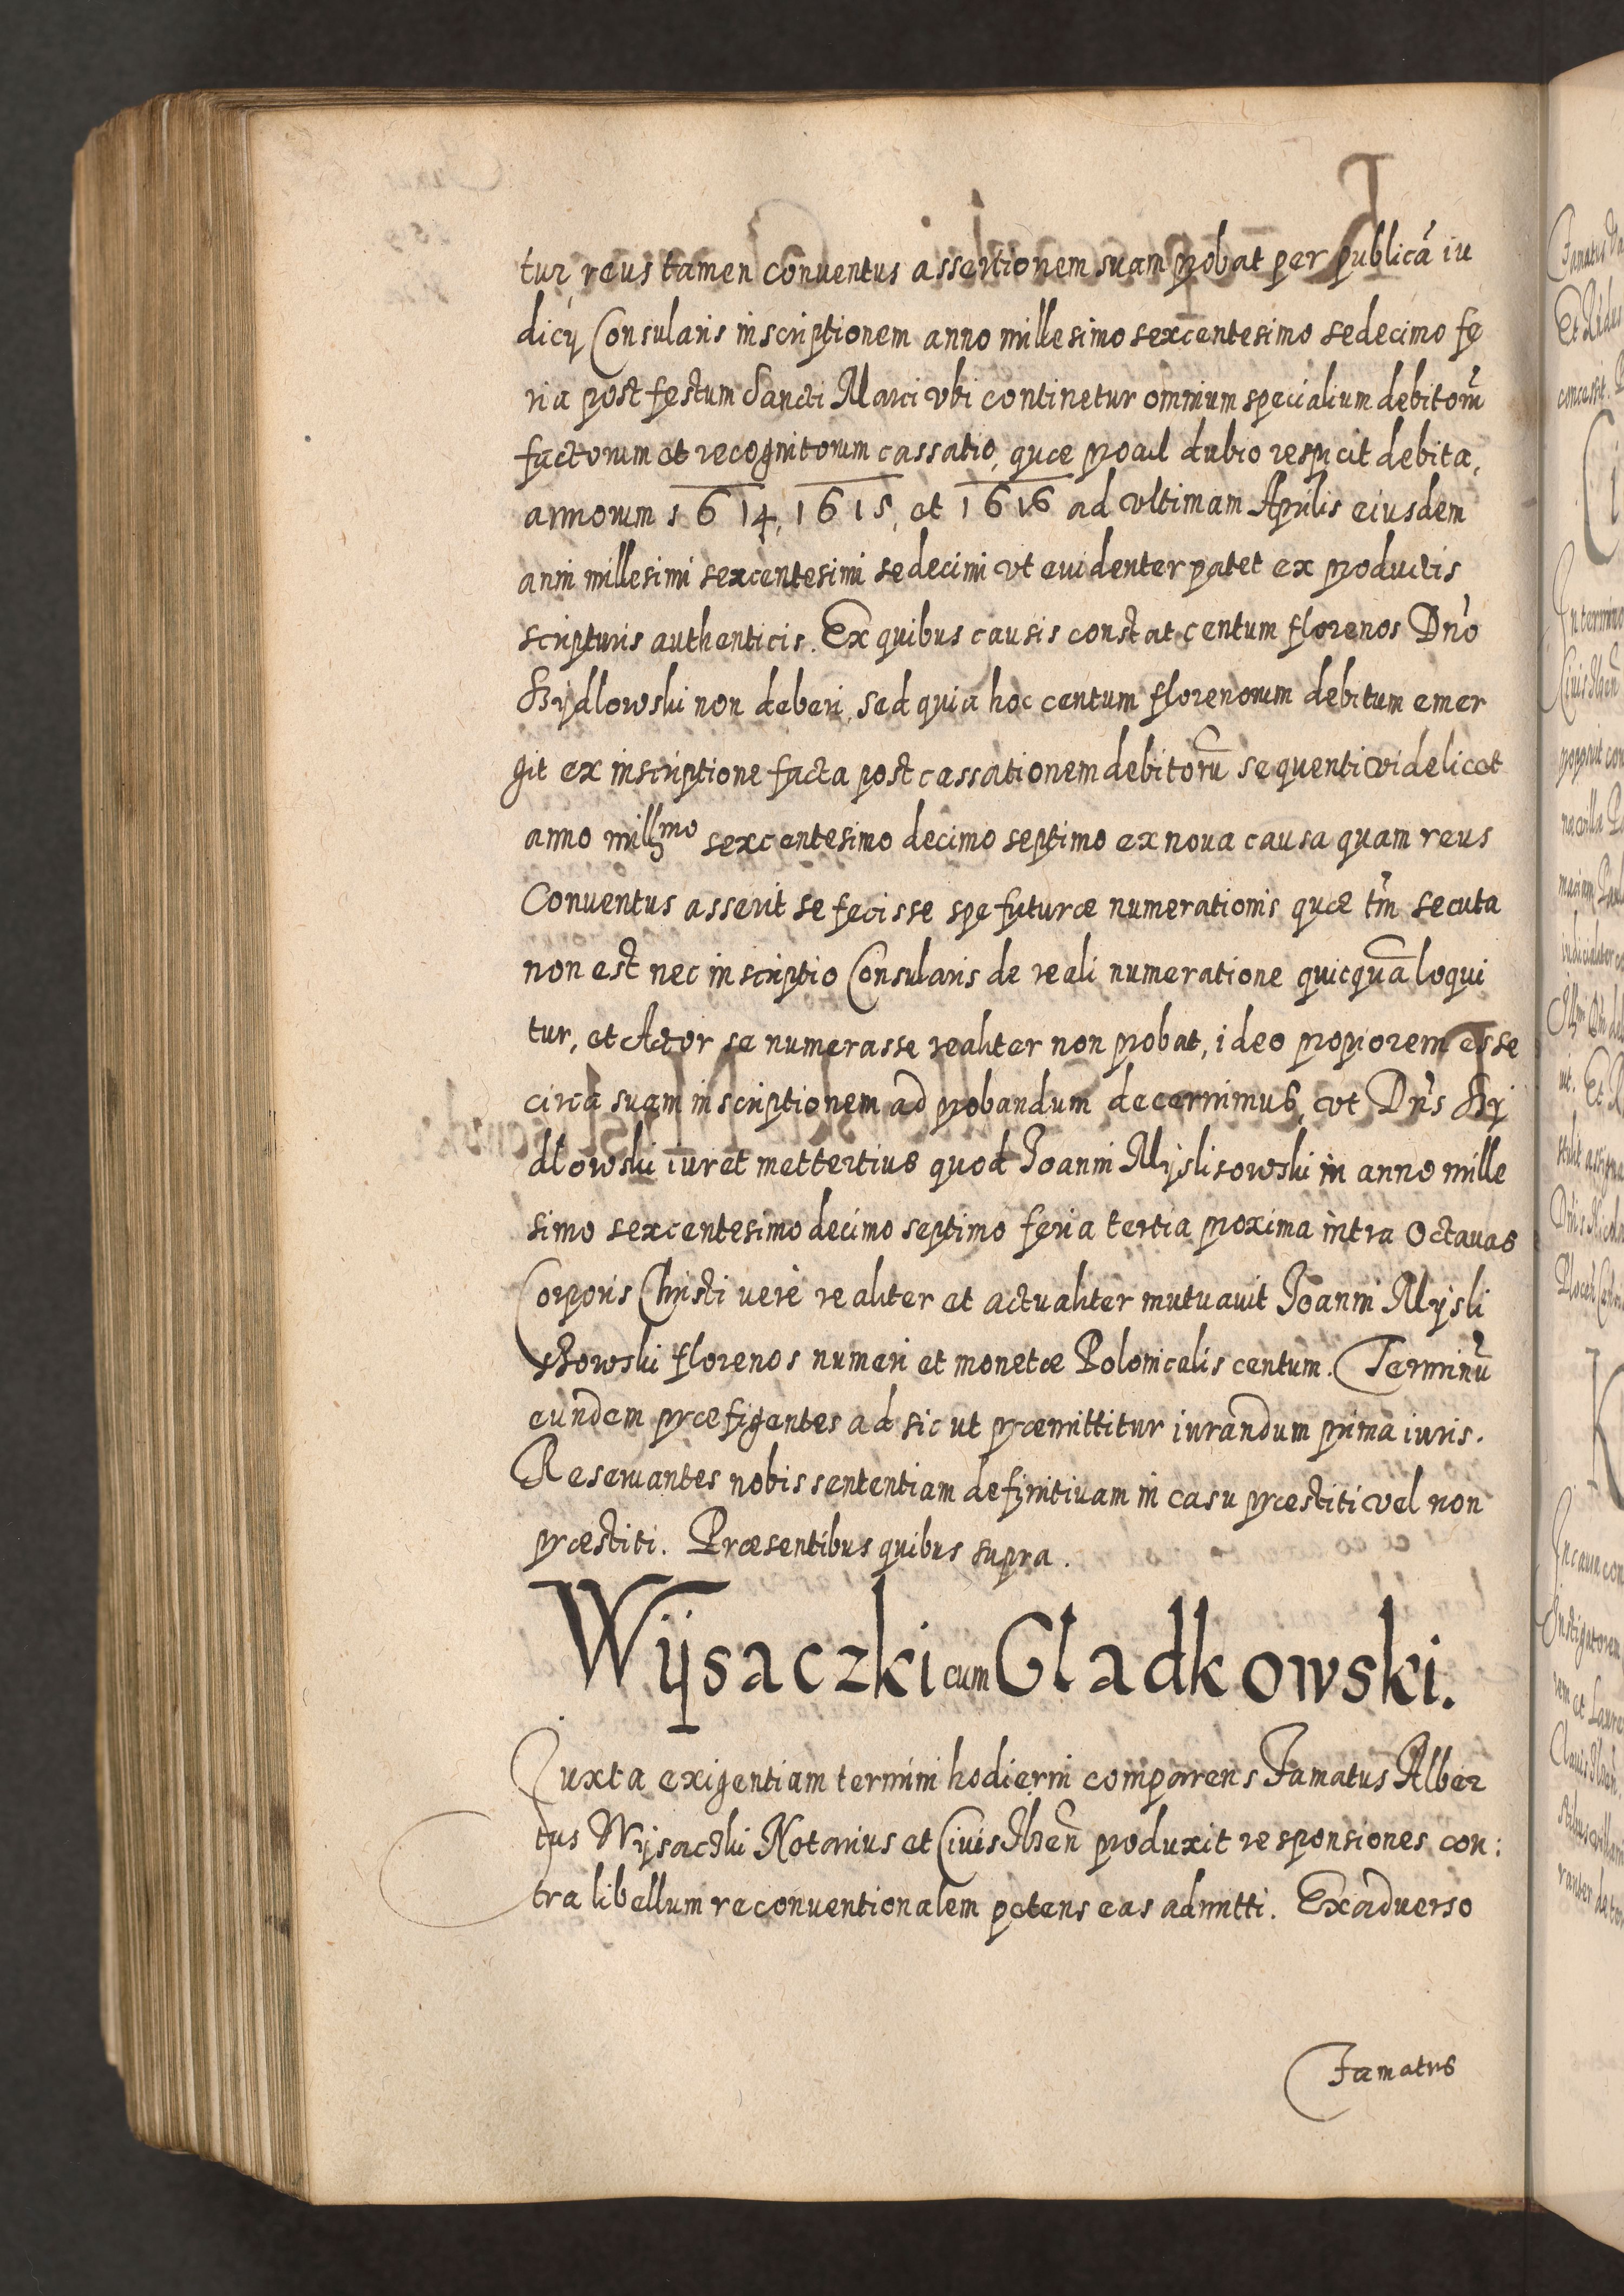 tur, reus tamen conuentus assertionem suam probat per publicã iu
dicÿ Consularis inscriptionem anno millesimo sexcentesimo sedecimo fe
ria post festum Sancti Marci vbi continetur omnium specialium debitorũ
factorum et recognitorum cassatio, quæ procul dubio respicit debita,
annorum 1614, 1615, et 1616 ad vltimam Aprilis eiusdem
anni millesimi sexcentesimi sedecimi vt euidenter patet ex productis
scripturis authenticis. Ex quibus causis constat centum florenos Dño
Szÿdlowski non deberi, sed quia hoc centum florenorum debitum emer
git ex inscriptione facta post cassationem debitorũ sequenti videlicet
anno millmo sexcentesimo decimo septimo ex noua causa quam reus
Conuentus asserit se fecisse spe futuræ numerationis quæ tñ secuta
non est nec inscriptio Consularis de reali numeratione quicquã loqui
tur, et Actor se numerasse realiter non probat, ideo propiorem esse
circa suam inscriptionem ad probandum decernimus, vt Dñs Szÿ
dlowski iuret mettertius quod Joanni Mÿslisowski in anno mille
simo sexcentesimo decimo septimo feria tertia proxima intra Octauas
Corporis Christi vere realiter et actualiter mutuauit Joanni Mÿsli
szowski florenos numeri et monetæ Polonicalis centum. Terminũ
eundem præfigentes ad sic ut præmittitur iurandum prima iuris.
Reseruantes nobis sententiam definitiuam in casu præstiti vel non
præstiti. Præsentibus quibus supra.
Wÿsaczki cum Gladkowski.
Juxta exigentiam termini hodierni comparens Famatus Alber
tus Wÿsaczki Notarius et Ciuis produxit responsiones con:
tra libellum reconuentionalem petens eas admitti. Ex aduerso
Famatus